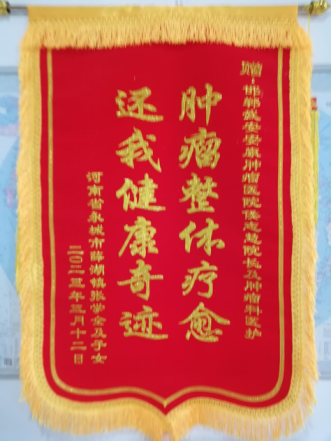 赠:邯郸武安安康肿瘤医院侯志慧院长及肿瘤科医护
肿瘤整体疗愈
还我健康奇迹
河南省永城市薛湖镇张学全及子女
二〇二三年三月十二日